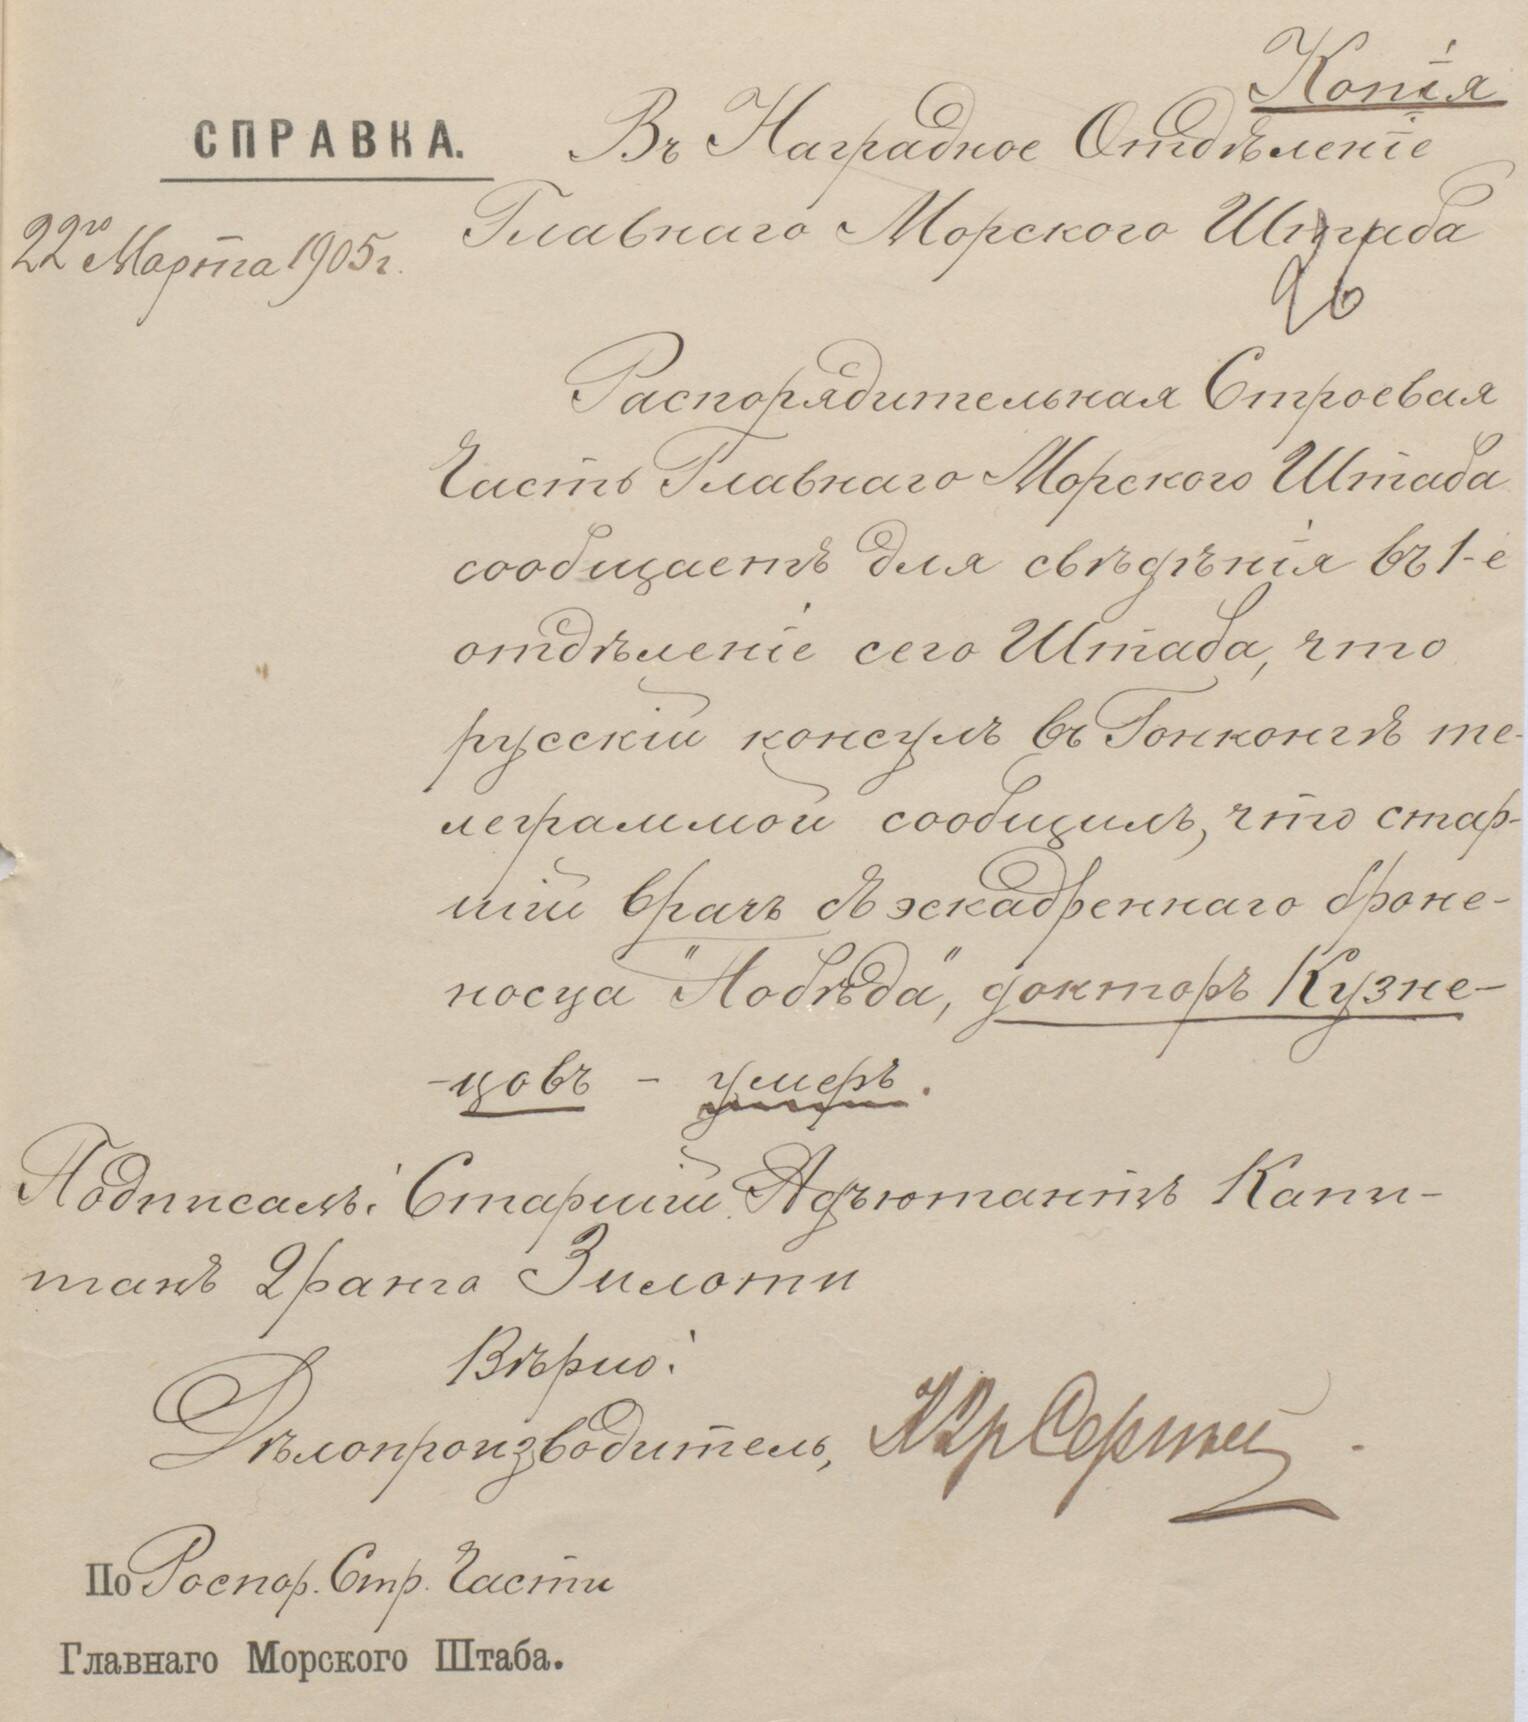 Копія
СПРАВКА.
Въ Наградное Отдѣленіе
22го Марта 1905 г.
Главнаго Морского Штаба
26
Распорядительная Строевая
Часть Главнаго Морского Штаба
сообщаетъ для свѣдѣнія въ 1-е
отдѣленіе сего Штаба, что
русскій консулъ въ Гонконгѣ те-
леграммой сообщилъ, что стар-
шій врачъ съ эскадреннаго броне-
носца "Побѣда", докторъ Кузне-
-цовъ - умеръ.
Подписалъ: Старшій Адъютантъ Капи-
танъ 2 ранга Зилоти
Вѣрно:
Дѣлопроизводитель,
По Роспор. Стр. Части
Главнаго Морского Штаба.